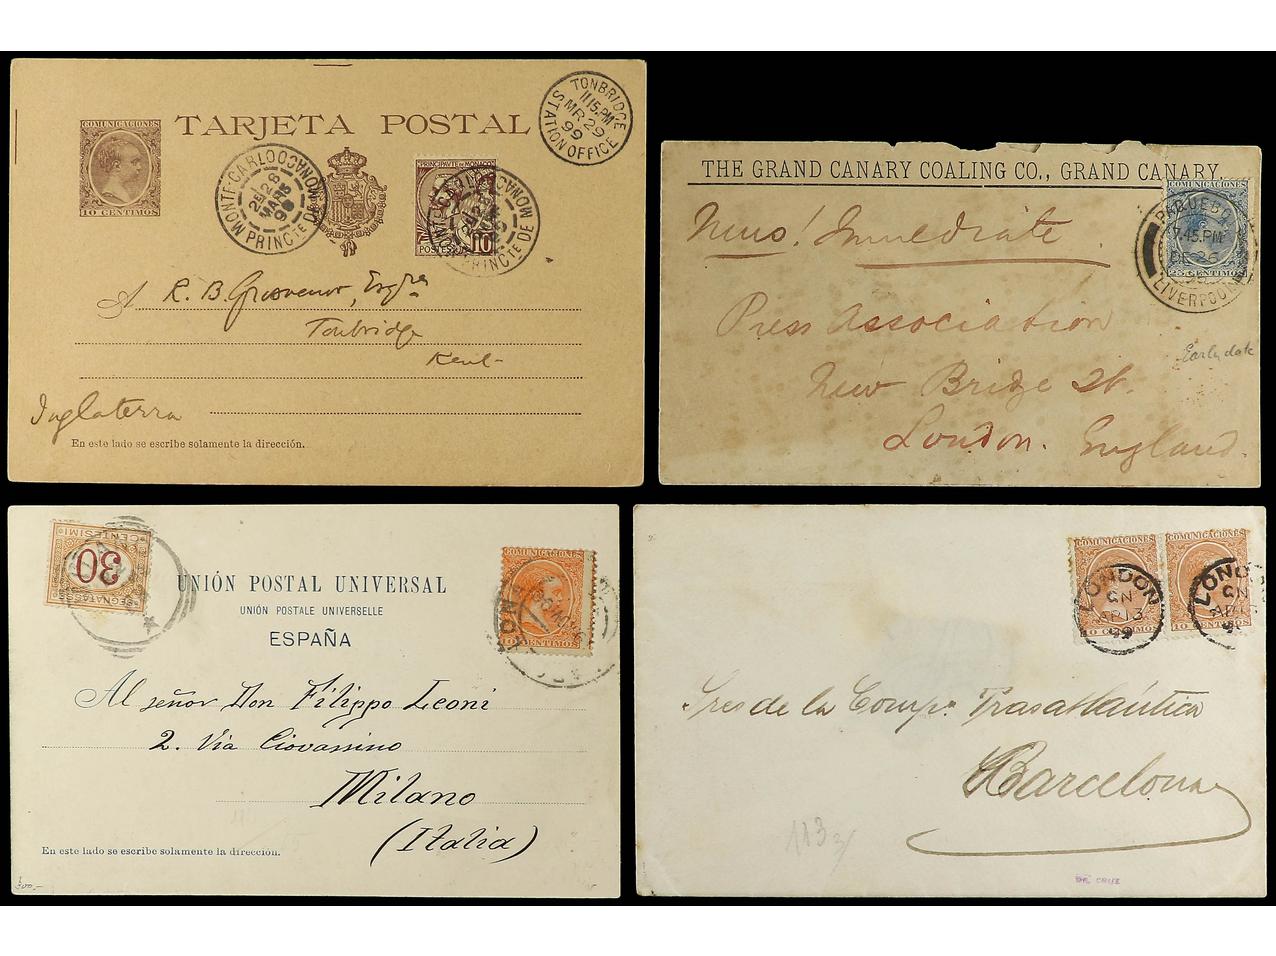 COMUNICACIONES
10 CENTIMOS
TARJETA POSTAL
MONTE-CARLO
PRINCTE DE MONACO
PRINCIPAUTÉ DE MONACO
POSTES 10
MONTE-CARLO
PRINCTE DE MONACO
TONBRIDGE
11 15 PM
MR 29
99
STATION OFFICE
A R. B. Grosvenor, Esqre
Tonbridge
Kent
Inglaterra
En este lado se escribe solamente la dirección.
THE GRAND CANARY COALING CO., GRAND CANARY.
COMUNICACIONES
25 CENTIMOS
PAQUEBOT
7.45.PM
DE 26
LIVERPOOL
News! Immediate
Press Association
New Bridge St.
London. England.
Early date
30
CENTESIMI
SEGNATASSE
UNIÓN POSTAL UNIVERSAL
UNION POSTALE UNIVERSELLE
ESPAÑA
COMUNICACIONES
10 CENTIMOS
Al señor Don Filippo Leoni
2. Via Giovassino
Milano
(Italia)
En este lado se escribe solamente la dirección.
COMUNICACIONES
10 CENTIMOS
COMUNICACIONES
10 CENTIMOS
LONDON
GN
AP 13
99
LONDON
GN
AP 13
Sres de la Compa. Trasatlántica
Barcelona
113
DR. CRUZ